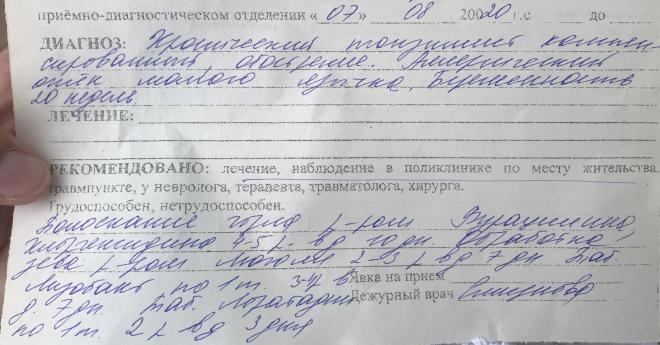 приёмно-диагностическом отделении « 07 » 08 20020 г.с до
ДИАГНОЗ: Хронический тонзиллит компен-
сированный, обострение. Аллергический
отек малого язычка, Беременность
20 недель
ЛЕЧЕНИЕ:
РЕКОМЕНДОВАНО: лечение, наблюдение в поликлинике по месту жительства.
травмпункте, у невролога, терапевта, травматолога, хирурга.
Трудоспособен, нетрудоспособен.
Полоскание горла р-ром Фурацилина,
хлоргексидина 4-5 р. в д Обработка
зева р-ром Люголя 2-3 р в д 7 дн Таб.
Лизобакт по 1 т. 3-4 в
Явка на прием
д. 7 дн. Таб. Лоратадин
Дежурный врач
по 1 т. 2 р в д 3 дня